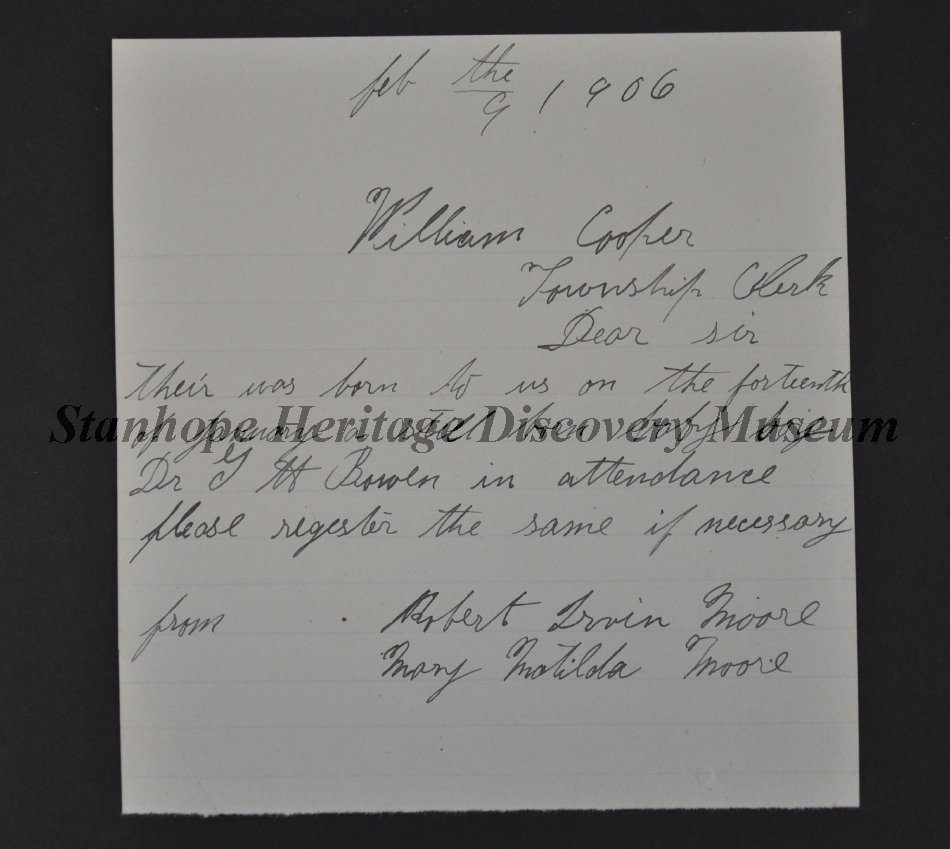 feb the 9 1906
William Cooper
Township Clerk
Dear sir
their was born to us on the forteenth
of January a still born baby boy
Stanhope Heritage Discovery Museum
Dr G H Bowen in attendance
please regester the same if necessary
from Robert Irvin Moore
Mary Matilda Moore